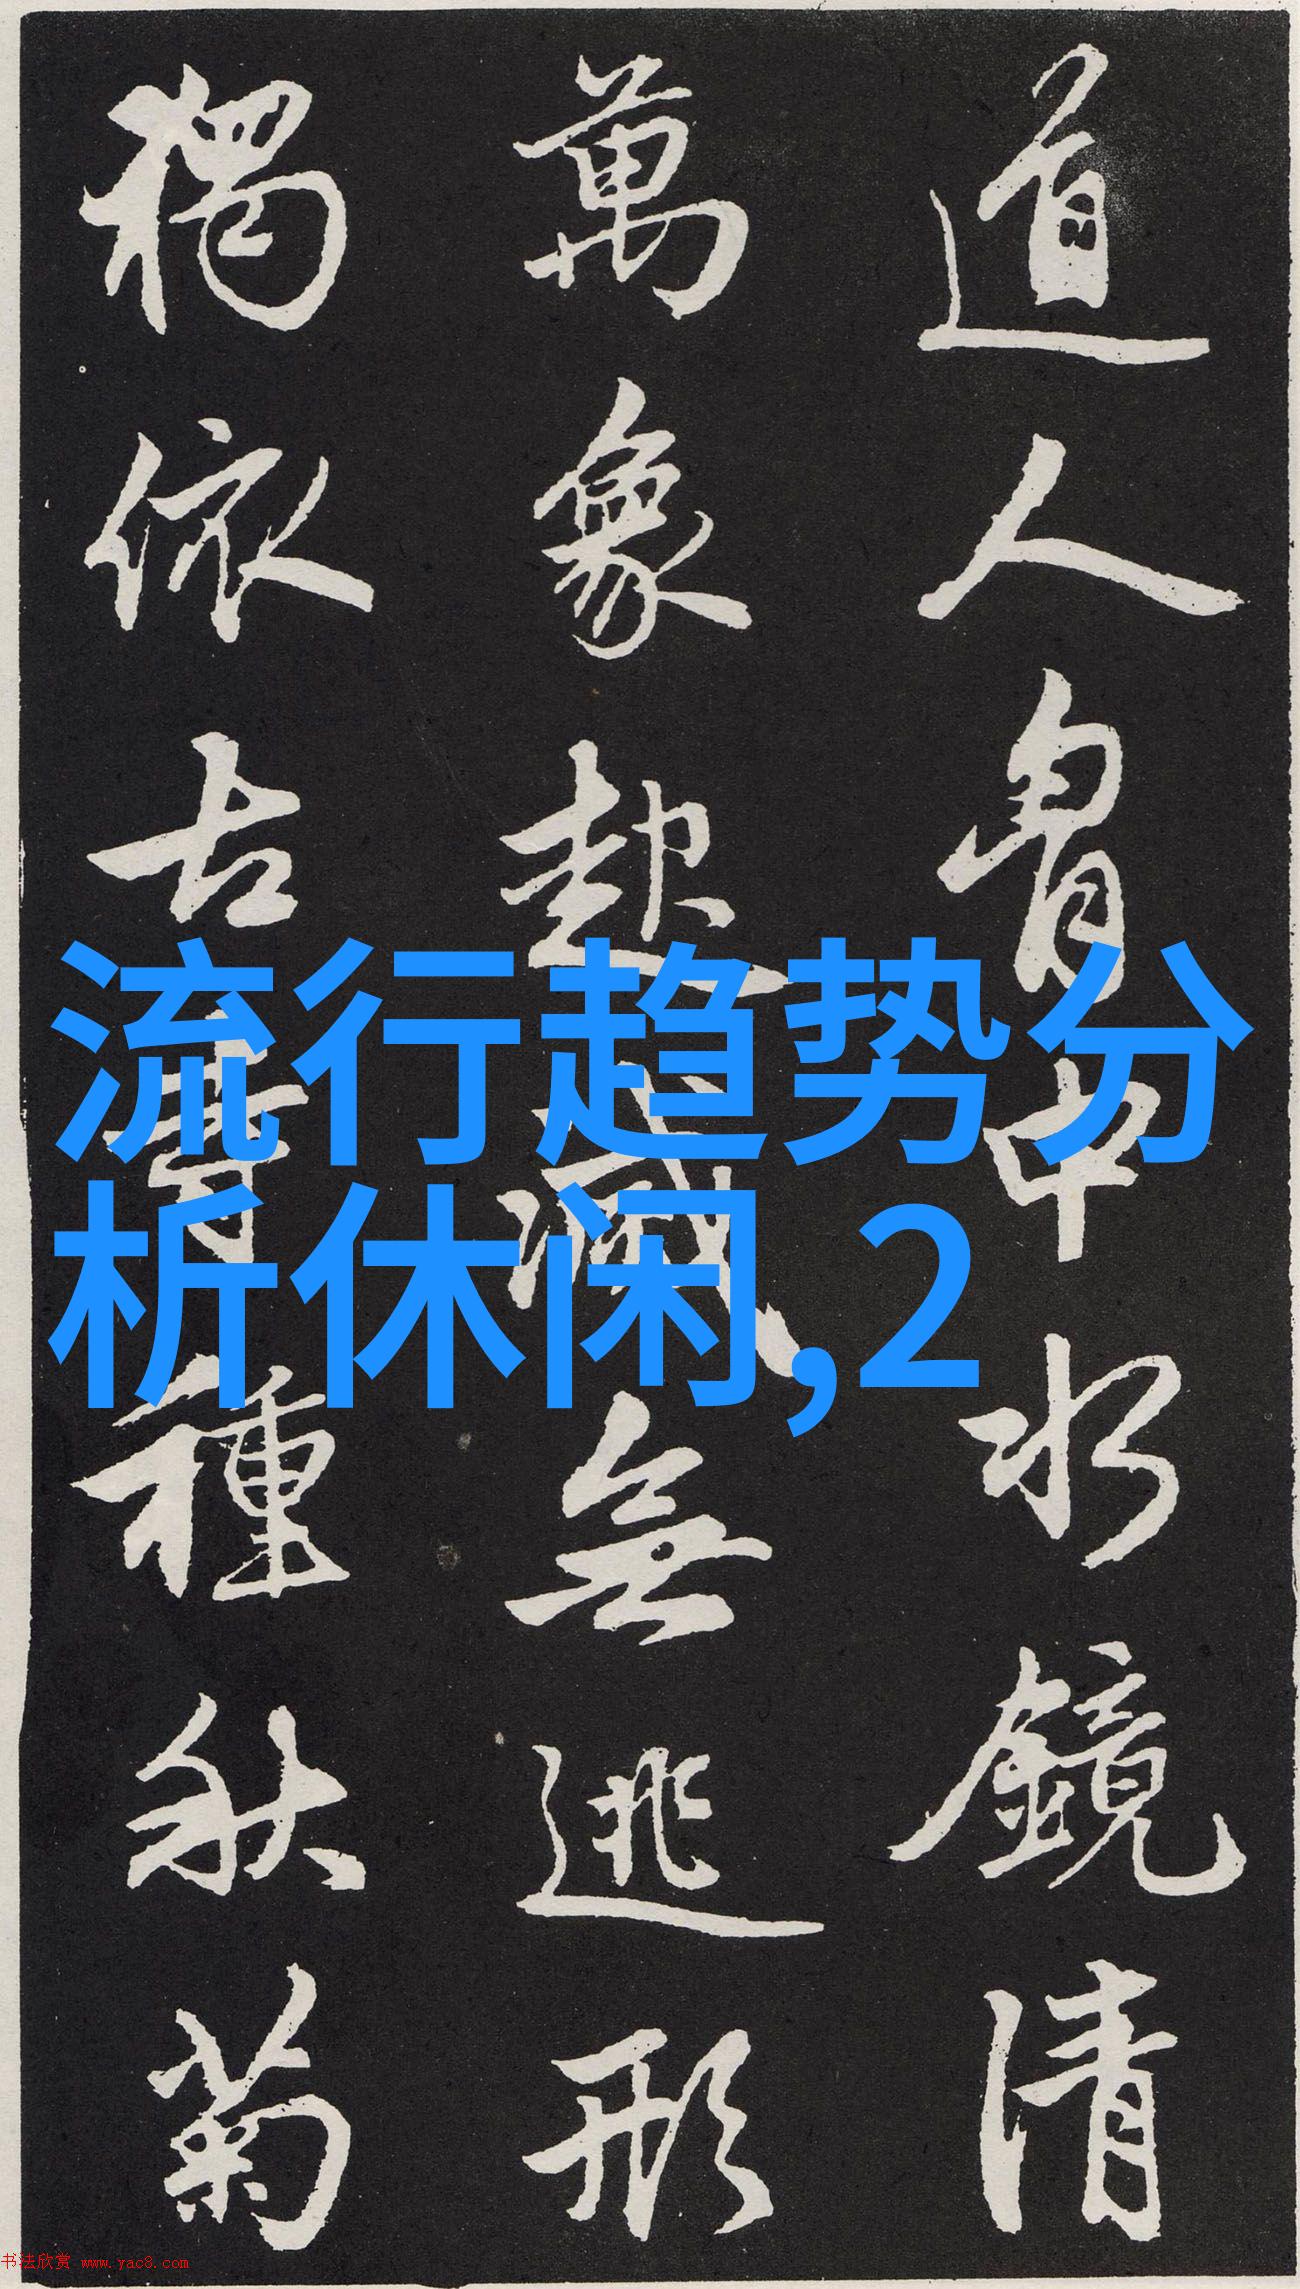 道人胷中水鏡清
萬象起滅無逃形
獨依古寺種秋菊
流行趋势分
析休闲,2
书法欣赏 www.yac8.com